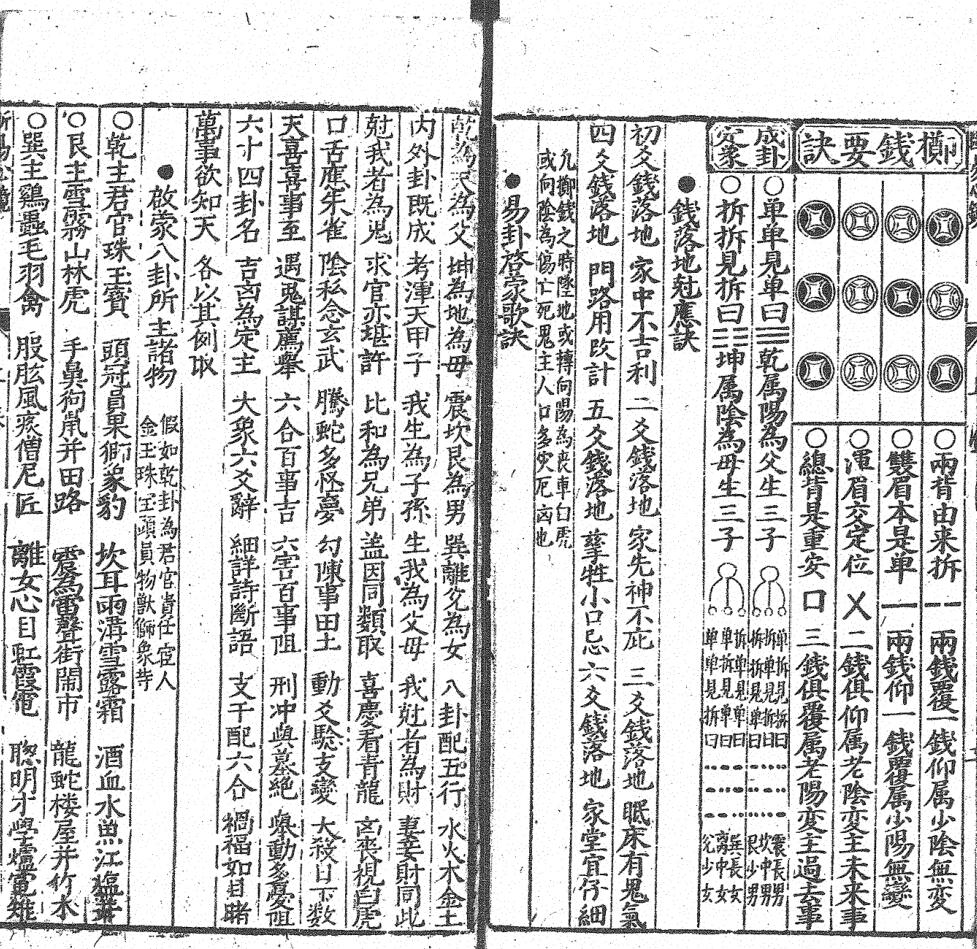 擲錢要訣
○兩背由来拆 -- 兩錢覆一錢仰属少陰無变
○雙眉本是单 一 兩錢仰一錢覆属少陽無變
○渾眉交定位 乂 三錢俱仰属老陰变主未来事
○總背是重安 口 三錢俱覆属老陽变主過去事
成卦定象
○单单見单曰☰乾属陽為父生三子
单拆見拆曰
拆单見拆曰
拆拆見单曰
震長男
坎中男
艮少男
○拆拆見拆曰☷坤属陰為母生三子
拆单見单曰
单拆見单曰
单单見拆曰
巽長女
離中女
兌少女
●錢落地尅應訣
初爻錢落地 家中不吉利 二爻錢落地 家先神不庇 三爻錢落地 眠床有鬼氣
四爻錢落地 門路用改計 五爻錢落地 孳牲小口忌 六爻錢落地 家堂宜仔細
凡擲錢之時墜地或轉向陽為喪車白虎
或向陰為傷亡死鬼主人口多灾厄凶也
●易卦啓蒙歌訣
乾為天為父 坤為地為母 震坎艮為男 巽離兌為女 八卦配五行 水火木金土
内外卦既成 考渾天甲子 我生為子孫 生我為父母 我尅者為財 妻妾財同此
尅我者為鬼 求官亦堪許 比和為兄弟 盖因同類取 喜慶看青龍 凶喪視白虎
口舌應朱雀 陰私念玄武 騰蛇多怪夢 勾陳事田土 動爻驗支變 大殺日下数
天喜喜事至 遇鬼謀薦舉 六合百事吉 六害百事阻 刑冲與墓絶 舉動多憂阻
六十四卦名 吉凶為定主 大象六爻辭 細詳詩斷語 支干配六合 禍福如目睹
萬事欲知天 各以其例取
●啟蒙八卦所主諸物
假如乾卦為君官貴任宦人
金玉珠宝頭員物獸獅象寺
○乾主君官珠玉寳 頭冠員果獅象豹 坎耳兩溝雪露霜 酒血水魚江塩
○艮主雪霧山林虎 手鼻狗鼠并田路 震為雷聲街閙市 龍蛇楼屋并竹木
○巽主鷄蟲毛羽禽 股肱風疾僧尼匠 離女心目虹霞電 聰明才學爐電雉